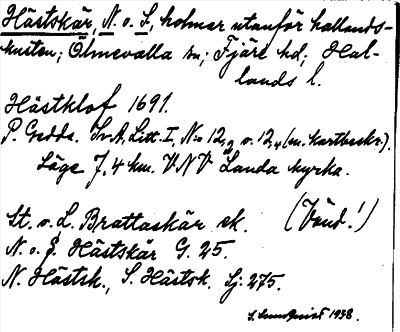 Hästskär, N. o. S., holmar utanför hallands-
kusten; Ölmevalla sn; Fjäre hd; Hal-
lands l.
Hästklof 1691.
P. Gedda. Kr.A. Litt. I, N:o 12,2 o. 12,4 (m. kartbeskr.).
Läge 7,4 km. VNV Landa kyrka.
St. o. L. Brattaskär sk. (Vänd!)
N. o. S. Hästskär G. 25.
N. Hästsk., S. Hästsk. Sj: 275.
1938.